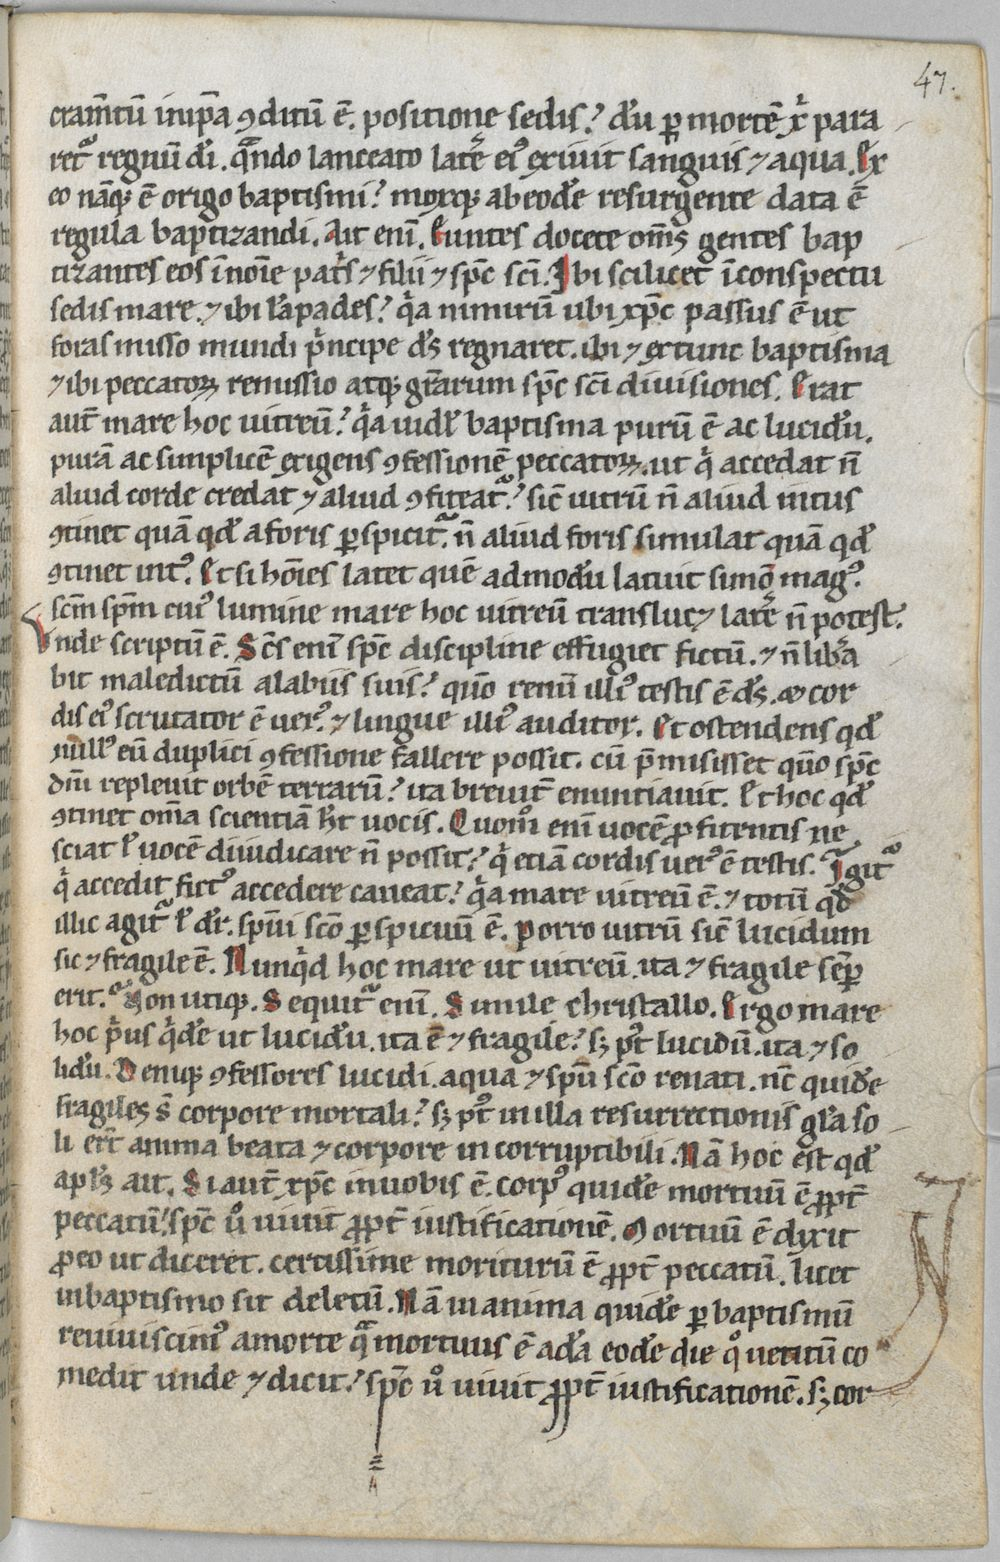 47.
cram̄tū in ip̄a ꝯditū ē. positione sedis? dū ꝑ mortē xp̄i para
ret᷑ regnū dī. q̄ndo lanceato latē eiꝰ exivit sanguis ⁊ aqua. Ex
eo nāq; ē origo baptismi? moxq; ab eodē resurgente data ē
regula baptizandi. Ait enī. Euntes docete om̄s gentes bap
tizantes eos ī noīe pat̄s ⁊ filii ⁊ sp̄c sc̄i. Ibi scilicet ī conspectu
sedis mare. ⁊ ibi lāpades? q̄a nimirū ubi xp̄c passus ē ut
foras misso mundi p̄ncipe d̄s regnaret. ibi ⁊ extunc baptisma
⁊ ibi peccatoꝝ remissio atq; gr̄arum sp̄c sc̄i divisiones. Erat
aut̄ mare hoc uitreū? q̄a uidꝉ baptisma purū ē ac lucidū.
purā ac simplicē exigens ꝯfessionē peccatoꝝ. ut q̄ accedat n̄
aliud corde credat ⁊ aliud ꝯfiteat᷑? sic̄ uitrū n̄ aliud intus
ꝯtinet quā qd̄ a foris ꝑspicit᷑. n̄ aliud foris simulat quā qd̄
ꝯtinet intꝰ. Et si hōies latet quē admodū latuit simoȳ magꝰ.
sc̄m sp̄m cuiꝰ lumine mare hoc uitreū translucꝫ latē n̄ potest.
Vnde scriptū ē. Sc̄s enī sp̄c discipline effugiet fictū. ⁊ n̄ lib̄a
bit maledictū a labiis suis? quō renū illiꝰ testis ē d̄s. ⁊ cor
dis eiꝰ scrutator ē uerꝰ. ⁊ lingue illiꝰ auditor. Et ostendens qd̄
nullꝰ eū duplici ꝯfessione fallere possit. cū p̄misisset quō sp̄c
dn̄i replevit orbē terrarū? ita brevit̄ enuntiavit. Et hoc qd̄
ꝯtinet om̄a scientiā h̄t uocis. Quom̊ enī uocē ꝓfitentis ne
sciat ꝉ uocē diiudicare n̄ possit? q̄ etiā cordis uerꝰ ē testis. Igit᷑
q̄ accedit fictꝰ accedere caveat? q̄a mare uitreū ē. ⁊ totū qd̄
illic agit᷑ ꝉ dr̄. sp̄ui sc̄o ꝑspicuū ē. Porro uitrū sic̄ lucidum
sic ⁊ fragile ē. Nunq̄d hoc mare ut uitreū. ita ⁊ fragile semꝑ
erit? Non utiq;. Sequit᷑ enī. Simile christallo. Ergo mare
hoc p̄us q̄dē ut lucidū. ita ē ⁊ fragile? sꝫ pꝰt lucidū. ita ⁊ so
lidū. Deniq; ꝯfessores lucidi. aqua ⁊ sp̄u sc̄o renati. nc̄ quidē
fragiles s̄ corpore mortali? sꝫ pꝰt in illa resurrectionis gl̄a so
li er̄t anima beata ⁊ corpore in corruptibili. Nā hoc est qd̄
apl̄s ait. Si aut̄ xp̄c in uobis ē. corpꝰ quidē mortuū ē ꝓpt̄
peccatū? sp̄c ů uiuit ꝓpt̄ iustificationē. Mortuū ē dixit
ꝓ eo ut diceret. certissime moriturū ē ꝓpt̄ peccatū. licet
in baptismo sit deletū. Nā in anima quidē ꝑ baptismū
reuiuiscimꝰ a morte q̄ mortuus ē adā eodē die q̊ uetitū co
medit unde ⁊ dicit? sp̄c ů uiuit ꝓpt̄ iustificationē. sꝫ cor